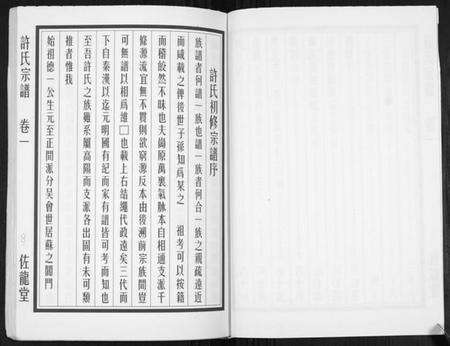 許氏初修宗譜序
族譜者何譜一族也譜一族者何合一族之親疏遠近
而咸載之俾後世子孫知爲某之 祖考可以按籍
而稽皎然不昧也夫崗原萬裏氣脉本自相通支派千
條源流宜無不貫則欲窮源反本由後溯前宗族間豈
可無譜以相爲維□也載上右結繩代政遠矣三代而
下自秦漢以迄元明國有記而家有譜皆可考而知也
至吾許氏之族雖系屬高陽而支派各出固有未可類
推者惟我
始祖德一公生元至正間派分吴會世居蘇之閶門
許氏宗譜 卷一
佐龍堂